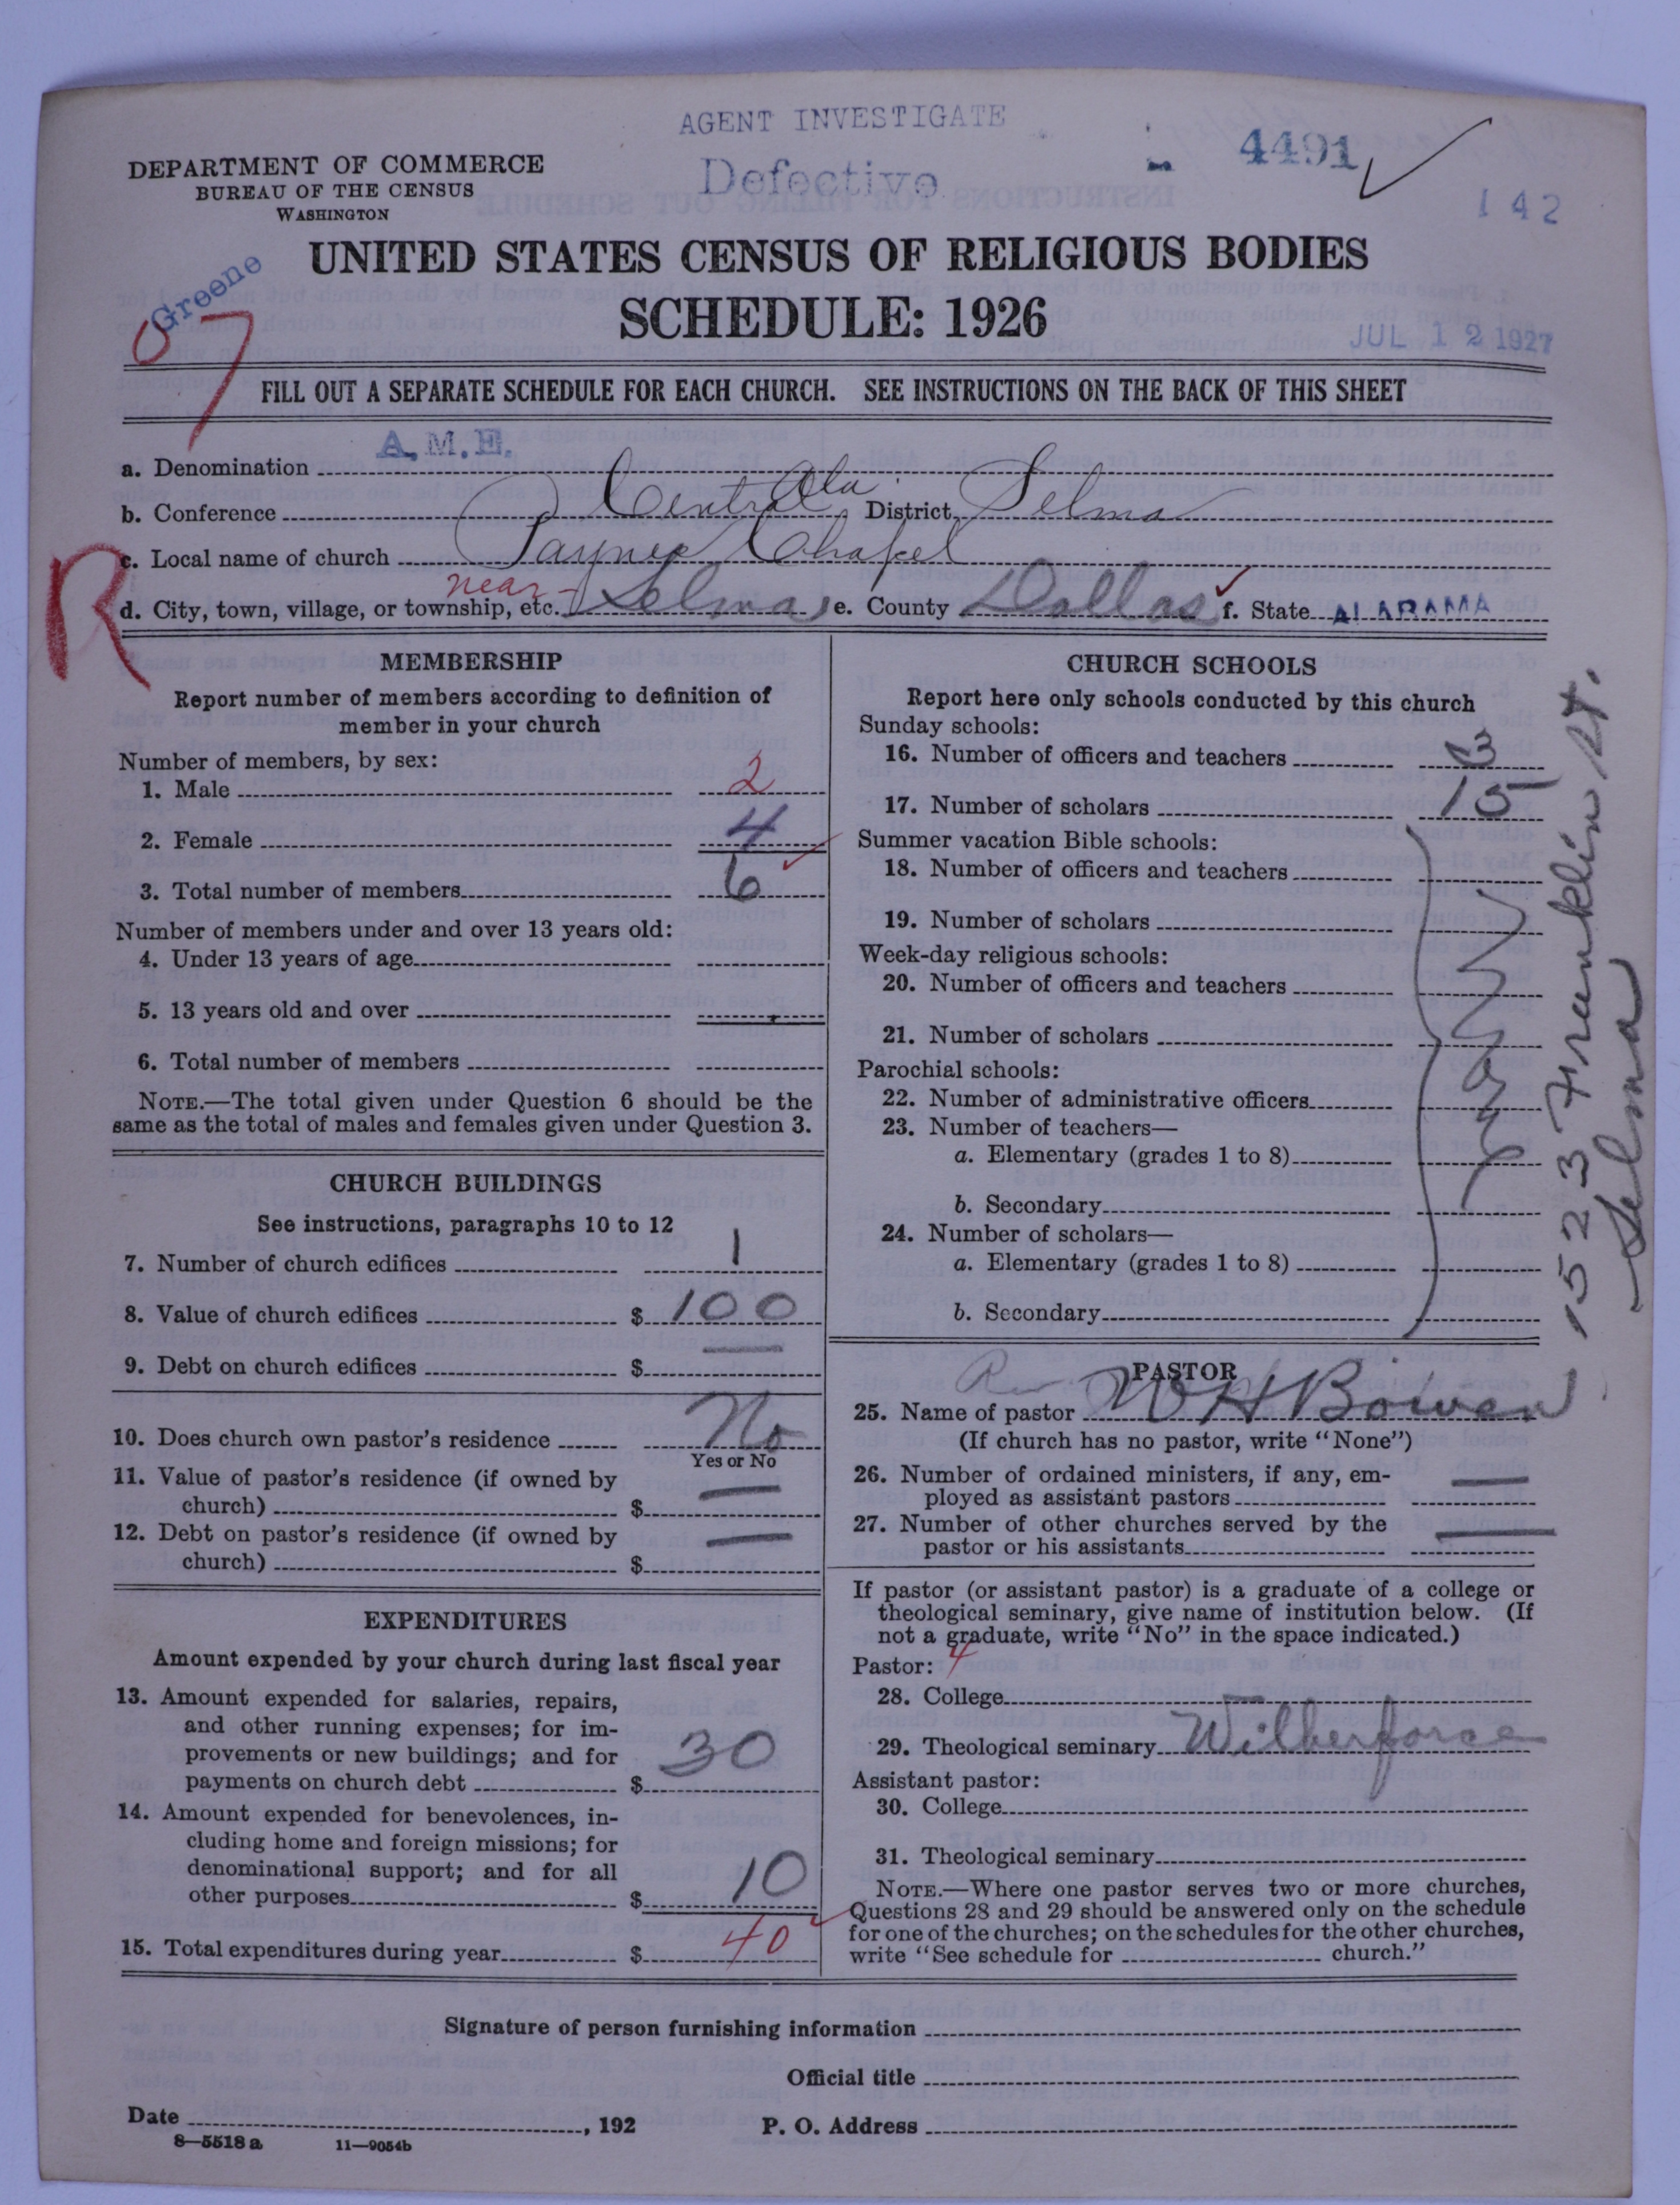 AGENT INVESTIGATE
4491
Defective
142
DEPARTMENT OF COMMERCE
BUREAU OF THE CENSUS
WASHINGTON
UNITED STATES CENSUS OF RELIGIOUS BODIES
SCHEDULE: 1926
Greene
07
JUL 12 1927
FILL OUT A SEPARATE SCHEDULE FOR EACH CHURCH. SEE INSTRUCTIONS ON THE BACK OF THIS SHEET
a. Denomination A. M. E.
b. Conference Central Ala. District Selma
c. Local name of church Paynes Chapel
R
d. City, town, village, or township, etc. near Selma, e. County Dallas f. State ALABAMA
MEMBERSHIP
Report number of members according to definition of
member in your church
Number of members, by sex:
1. Male 2
2. Female 4
3. Total number of members 6
Number of members under and over 13 years old:
4. Under 13 years of age
5. 13 years old and over
6. Total number of members
NOTE.—The total given under Question 6 should be the
same as the total of males and females given under Question 3.
CHURCH BUILDINGS
See instructions, paragraphs 10 to 12
7. Number of church edifices 1
8. Value of church edifices $ 100
9. Debt on church edifices $ —
10. Does church own pastor's residence No
Yes or No
11. Value of pastor's residence (if owned by
church) $ —
12. Debt on pastor's residence (if owned by
church) $ —
EXPENDITURES
Amount expended by your church during last fiscal year
13. Amount expended for salaries, repairs,
and other running expenses; for im-
provements or new buildings; and for
payments on church debt $ 30
14. Amount expended for benevolences, in-
cluding home and foreign missions; for
denominational support; and for all
other purposes $ 10
15. Total expenditures during year $ 40
CHURCH SCHOOLS
Report here only schools conducted by this church
Sunday schools:
16. Number of officers and teachers 3
17. Number of scholars 15
Summer vacation Bible schools:
18. Number of officers and teachers
19. Number of scholars
Week-day religious schools:
20. Number of officers and teachers
21. Number of scholars
Parochial schools:
22. Number of administrative officers
23. Number of teachers—
a. Elementary (grades 1 to 8)
b. Secondary
24. Number of scholars—
a. Elementary (grades 1 to 8)
b. Secondary
1523 Franklin St.
Selma
PASTOR
25. Name of pastor Rev W H Bowen
(If church has no pastor, write "None")
26. Number of ordained ministers, if any, em-
ployed as assistant pastors —
27. Number of other churches served by the
pastor or his assistants —
If pastor (or assistant pastor) is a graduate of a college or
theological seminary, give name of institution below. (If
not a graduate, write "No" in the space indicated.)
Pastor: 4
28. College
29. Theological seminary Wilberforce
Assistant pastor:
30. College
31. Theological seminary
NOTE.—Where one pastor serves two or more churches,
Questions 28 and 29 should be answered only on the schedule
for one of the churches; on the schedules for the other churches,
write "See schedule for church."
Signature of person furnishing information
Official title
Date , 192 P. O. Address
8—5518 a 11—9054b